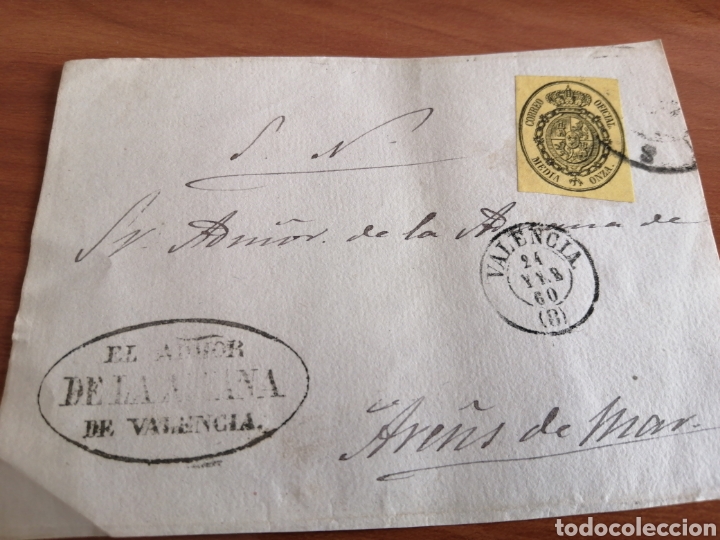 CORREO OFICIAL
MEDIA ONZA.
S. N.
Sr. Admor. de la Aduana de
VALENCIA
24
60
(8)
EL ADMOR
DE LA ADUANA
DE VALENCIA.
Areñs de Mar.
todocoleccion
todocoleccion.net